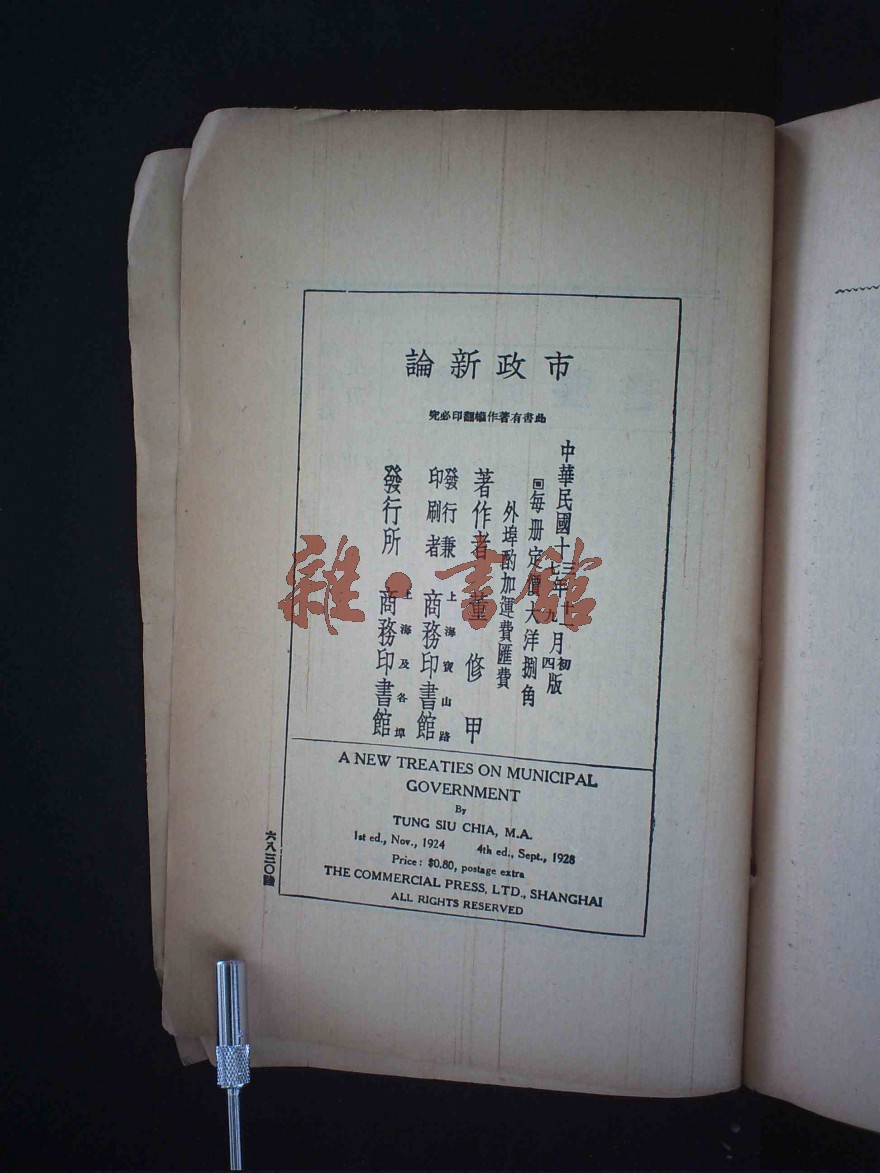 市政新論
此書有著作權翻印必究
中華民國十三年十一月初版
十七年九月四版
每册定價大洋捌角
外埠酌加運費匯費
著作者 董修甲
發行兼印刷者 上海寶山路 商務印書館
發行所 上海及各埠 商務印書館
A NEW TREATIES ON MUNICIPAL
GOVERNMENT
By
TUNG SIU CHIA, M.A.
1st ed., Nov., 1924 4th ed., Sept., 1928
Price: $0.80, postage extra
THE COMMERCIAL PRESS, LTD., SHANGHAI
ALL RIGHTS RESERVED
六八三〇論
雜·書館